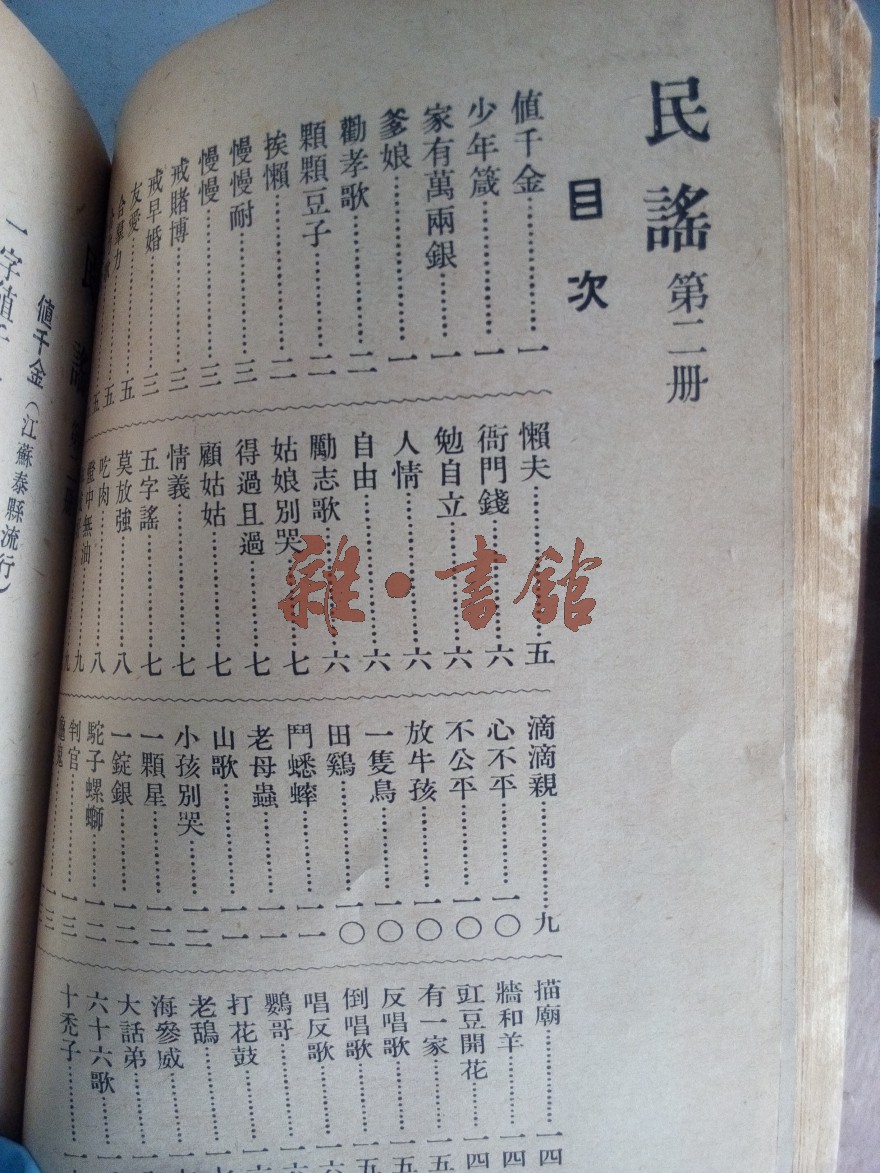 民謠 第二册
目次
値千金…………一
少年箴…………一
家有萬兩銀…………一
爹娘…………一
勸孝歌…………二
顆顆豆子…………二
挨懶…………二
慢慢耐…………三
慢慢…………三
戒賭博…………三
戒早婚…………三
友愛…………五
合羣力…………五
五
懶夫…………五
衙門錢…………六
勉自立…………六
人情…………六
自由…………六
勵志歌…………六
姑娘別哭…………七
得過且過…………七
顧姑姑…………七
情義…………七
五字謠…………七
莫放強…………八
吃肉…………八
燈中無油…………九
九
滴滴親…………九
心不平…………一〇
不公平…………一〇
放牛孩…………一〇
一隻鳥…………一〇
田鷄…………一〇
鬥蟋蟀…………一一
老母蟲…………一一
山歌…………一一
小孩別哭…………一二
一顆星…………一二
一錠銀…………一二
駝子螺螄…………一二
判官…………一三
一三
描廟…………一四
牆和羊…………一四
豇豆開花…………一四
有一家…………一五
反唱歌…………一五
倒唱歌…………一五
唱反歌…………一六
鸚哥…………一六
打花鼓…………一
老鴰…………一
海參威…………一
大話弟…………一
六十六歌…………一
十禿子…………一
値千金（江蘇泰縣流行）
一字値千
雜·書館